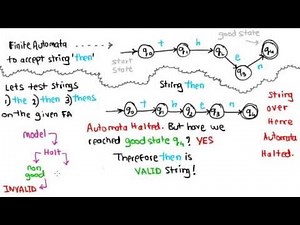 good state
Finite Automata
to accept string 'then'
q0 t q1 h q2 e q3 n q4
start
state
Lets test strings
1) the 2) then 3) thens
on the given FA
String then
q0 t q1 h q2 e q3 n q4
model
Halt
non
good
INVALID
Automata Halted. But have we
reached good state q4? YES
Therefore then is
VALID String!
String
over
Hence
Automata
Halted.